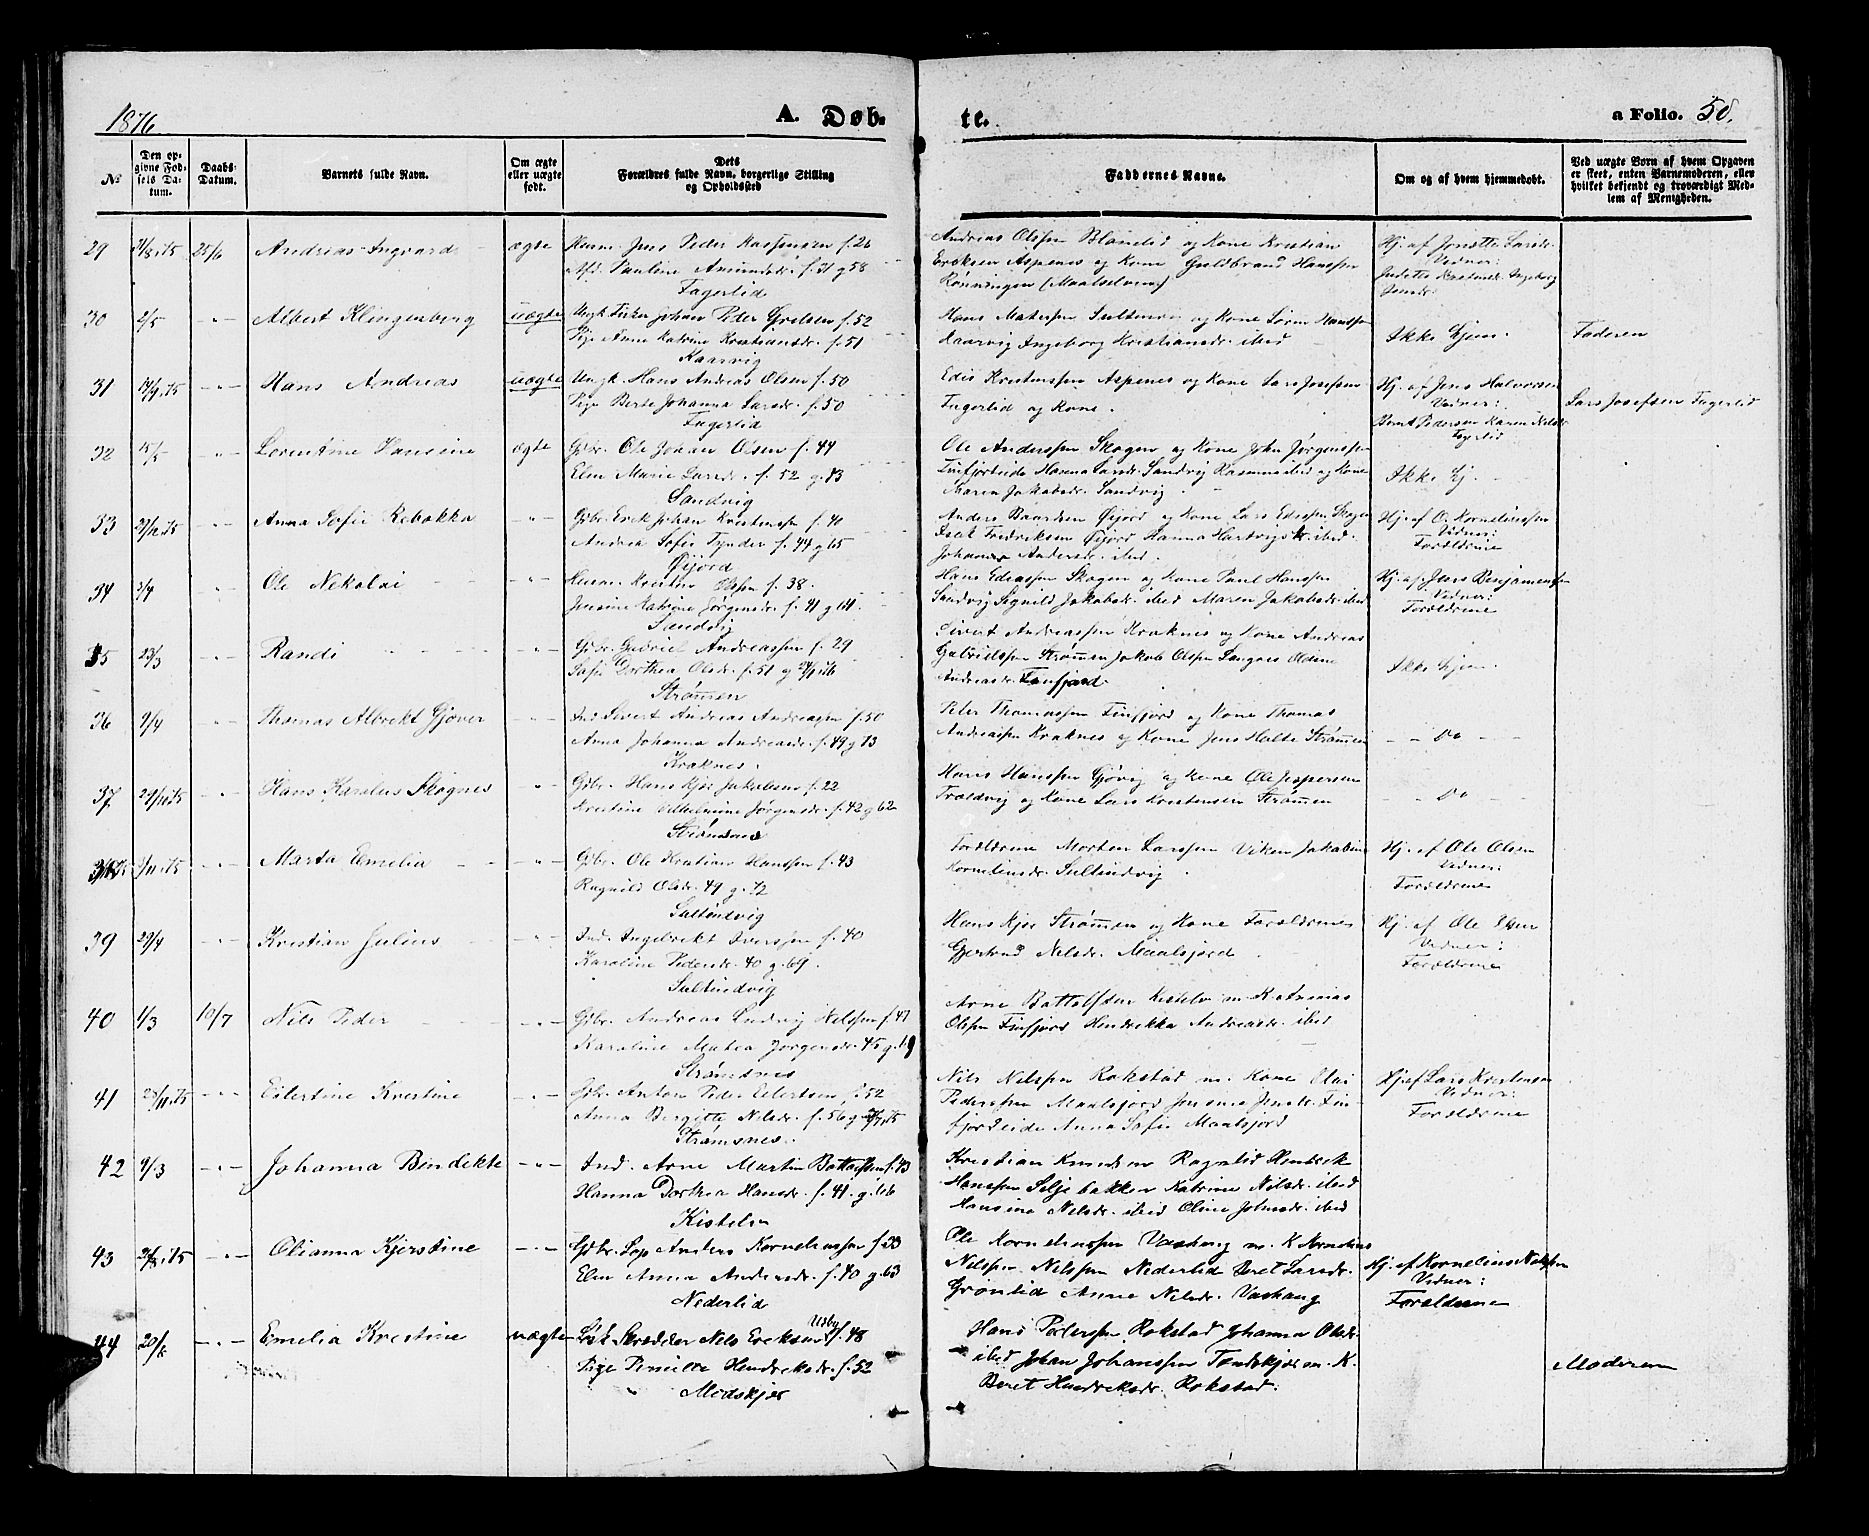 1876
A. Døb-
te.
a Folio. 58.
No
Den op-
givne Fød-
sels Da-
tum.
Daabs-
Datum.
Barnets fulde Navn.
Om ægte
eller uægte
født.
Dets
Forældres fulde Navn, borgerlige Stilling
og Opholdssted
Faddernes Navne.
Om og af hvem hjemmedøbt.
Ved uægte Børn af hvem Opgaven
er skeet, enten Barnemoderen, eller
hvilket bekjendt og troværdigt Med-
lem af Menigheden.
29 25/6 Andreas Ingvard ægte Husm. Jens Peder f. 26
Pauline Amundsdr. f. 31 g 58
Fagerlid
Andreas Olssen Blaatind og Kone Kristian
Ericksen Aspenes og Kone Guldbrand Hanssen
Rønningen (Maalselven)
Hj. af Jonette Larsdr.
Vidner:
30 2/5 -"- Albert Klingenberg uægte Ungk. Fisker Johan Peder f. 52
Pige Anne Katrine Kristiansdr. f. 51
Kaarvig
Hans Kone Søren Hanssen
Kaarvig Ingeborg Kristiansdr. ibid
Ikke hjem.
Faderen
31 14/9.75 -"- Hans Andreas uægte Ungk. Hans Andreas Olsen f. 50
Pige Berte Johanna Larsdr. f. 50
Fagerlid
Edis Kristenssen Aspenes og Kone Lars Josefsen
Fagerlid og Kone.
Hj. af Jens Halvorsen
Vidner:
Bernt Pedersen Karen Nilsdr.
Fagerlid
Lars Josefsen Fagerlid
32 -"- Lorentine Hansine ægte Gdbr. Ole Johan Olsen f. 44
Elen Marie Larsdr. f. 52 g. 73
Sandvig
Ole Anderssen Skogen og Kone John Jørgenssen
Finfjordeide Hansna Larsdr. Sandvig Rasmus ibid og Kone
Maren Jakobsdr. Sandvig.
Ikke hj.
33 27/12.75 -"- Anna Sofie Rebekka -"- Gdbr. Erik Johan Kristenssen f. 40
Andrea Sofie Tynder f. 44 g 65
Øijord
Anders Baardsen Øijord og Kone Lars Edissen Skogen
Isak Fredriksen Øijord Hanna Hartvigsdr. ibid.
Johanna Andersdr. ibid.
Hj. af O. Kornelinssen
Vidner:
Forældrene
34 3/4 -"- Ole Nekolai -"- Husm. Kristen Olssen f. 38.
Jensine Katrine Jørgensdr. f. 41 g 64
Sandvig
Hans Edissen Skogen og Kone Paul Hanssen
Sandvig Segnild Jakobsdr. ibid Maren Jakobsdr. ibid
Hj. af Jens Benjaminsen
Vidner:
Forældrene
35 23/3 -"- Randi -"- Gdbr. Gabriel Andreassen f. 29
Sofie Dorthea Olsdr. f. 51 g
Strømen
Sivert Andreassen Kraknes og Kone Andreas
Gabrielssen Strømen Jakob Olssen Langnes Oldine
Andreasdr. Finfjord.
Ikke hjem.
36 9/4 -"- Thomas Albrekt Gjøver -"- Ind. Sivert Andreas Andreassen f. 50
Anna Johanna Andreasdr. f. 49 g 73
Kraknes.
Peter Thomassen Finfjord og Kone Thomas
Andreassen Kraknes og Kone Jens Holte Strømen
Do
37 29/12.75 -"- Hans Karolus Skognes -"- Gdbr. Hans Kjær Jakobsen f. 22
Kristine Vilhelmine Jørgensdr. f. 42 g 62
Strømsnes
Hans Hanssen Gjøvig og Kone Ole Jespersen
Trældvig og Kone Lars Kristensen Strømen
Do
-"- Marta Emelia -"- Gdbr. Ole Kristian Hanssen f. 43
Ragnild Olsdr. 49 g. 72
Sultindvig
Forældrene Morten Larssen Viken Jakobine
Kornelinsdr. Sultindvig.
Hj. af Ole Olsen
Vidner:
Forældrene
39 29/4 -"- Kristian Julius -"- Ind. Ingebrekt Iverssen f. 40
Karoline Pedersdr. 40 g. 69.
Sultindvig
Hans Kjær Strømen og Kone Forældrene
Gjertrud Nelsdr. Maalsjord
Hj. af Ole Olsen
Vidner:
Forældrene
40 1/3 10/7 Nils Peder -"- Gdbr. Andreas Ludvig Nilssen f. 47
Karoline Matea Jørgensdr. 45 g. 69
Strømsnes
Arne Bottolfsen Kistelv m. K. Arnius
Olssen Finfjord Hendrikka Andreasdr. ibid
41 -"- Eilertine Kristine -"- Gdbr. Anton Peder Eilertsen f. 52
Anna Bergitte Nelsdr. f. 56 g
Strømsnes.
Nils Nilssen Rokstad m. Kone Olai
Pederssen Maalsjord Jensine Jensdr. Fin-
fjordeide Anna Sofie Maalsjord
Hj. af Lars Kristensen
Vidner:
Forældrene
42 9/3 -"- Johanna Bendikte -"- Ind. Arne Martin Bottolfsen f. 43
Hanna Dorthea Hansdr. f. 41. g. 66
Kistelv
Kristian Knudsen Ragnild Henrik
Hanssen Seljebakken Katrine Nilsdr. ibid
Hansine Nelsdr. ibid Oline Johnsdr. ibid
43 -"- Olianna Kjerstine -"- Gdbr. Lap Anders Kornelinssen f. 33
Elen Anna Andersdr. f. 40 g. 63
Nederlid
Ole Kornelinssen Vashaug m. K. Kornelius
Nilssen. Nilssen Nederlid Beret Larsdr.
Grønlid Anne Nelsdr. Vashaug
Hj. af Kornelius Nilssen
Vidner:
Forældrene
44 20/6 -"- Emelia Kristine uægte Skrædder Nels Ericksen Usby f. 48
Pige Pernille Hendriksdr. f. 52
Modskjer
Hans Pederssen Rokstad Johanna Olsdr.
ibid Johan Johanssen Tendskjer m. K.
Beret Hendriksdr. Rokstad.
Moderen